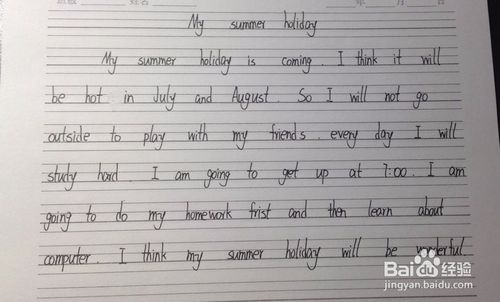 My summer holiday
My summer holiday is coming. I think it will
be hot in July and August. So I will not go
outside to play with my friends. every day I will
study hard. I am going to get up at 7:00. I am
going to do my homework frist and then learn about
computer. I think my summer holiday will be wonderful.
Baidu经验
jingyan.baidu.com